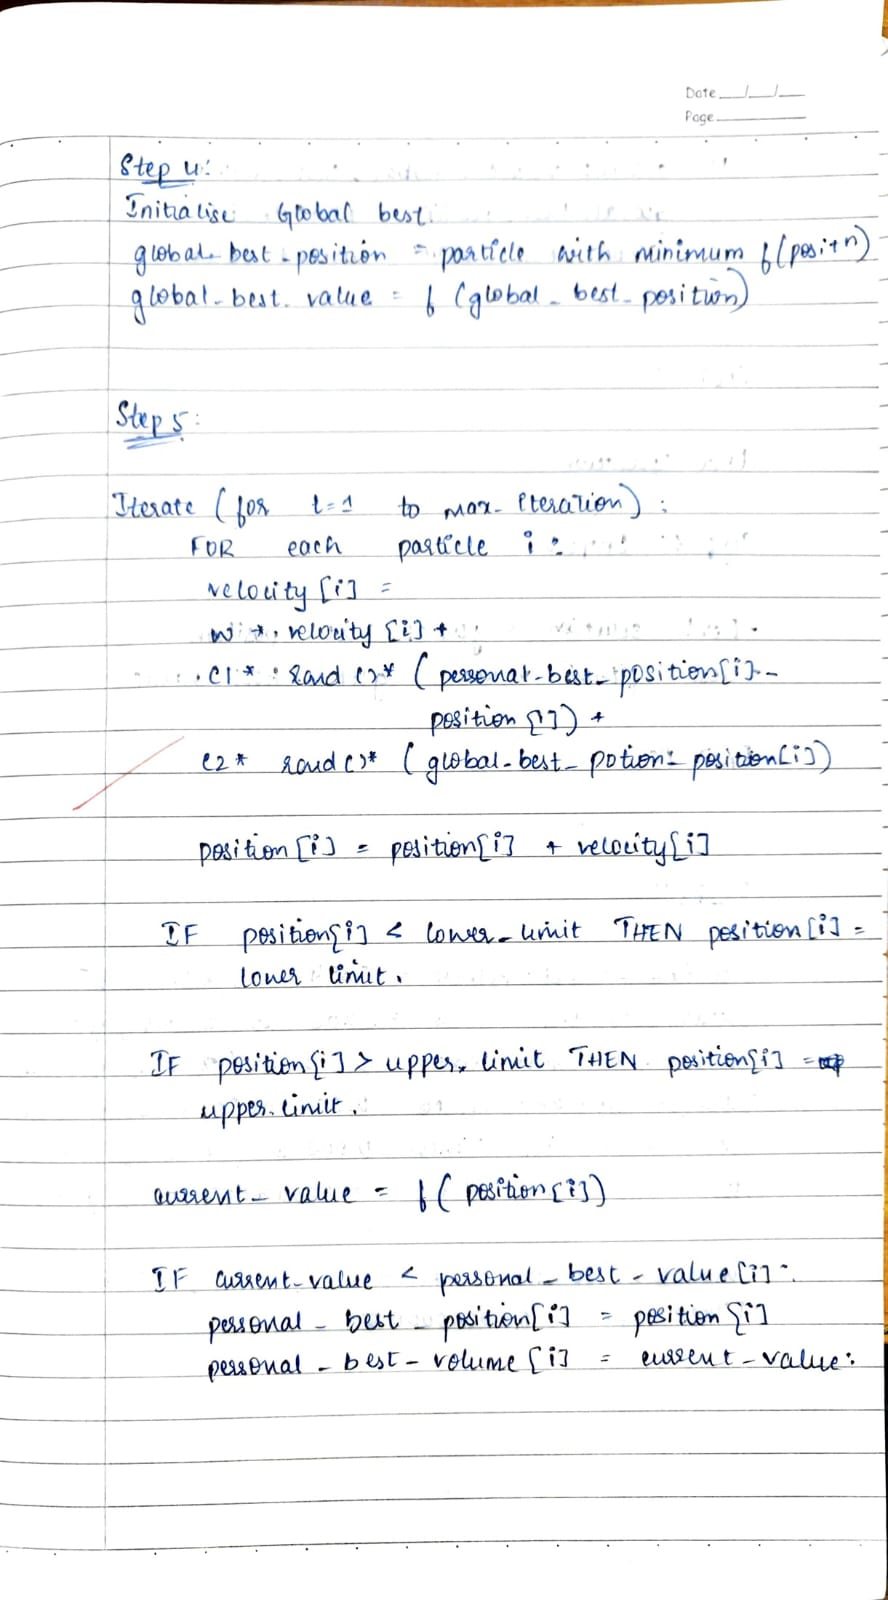 Date __/__/__
Page ______
Step 4:
Initialise Global best.
global_best_position = particle with minimum f(positn)
global_best_value = f (global_best_position)
Step 5:
Iterate (for t=1 to max_iteration):
FOR each particle i:
velocity [i] =
w * velocity [i] +
c1 * rand ()* (personal_best_position[i] -
position [i]) +
c2 * rand()* (global_best_potion - position[i])
position [i] = position[i] + velocity[i]
IF position[i] < lower_limit THEN position[i] =
lower limit.
IF position[i] > upper_limit THEN position[i] =
upper_limit.
current_value = f( position[i])
IF current_value < personal_best_value[i]:
personal_best_position[i] = position [i]
personal_best_volume [i] = current_value: